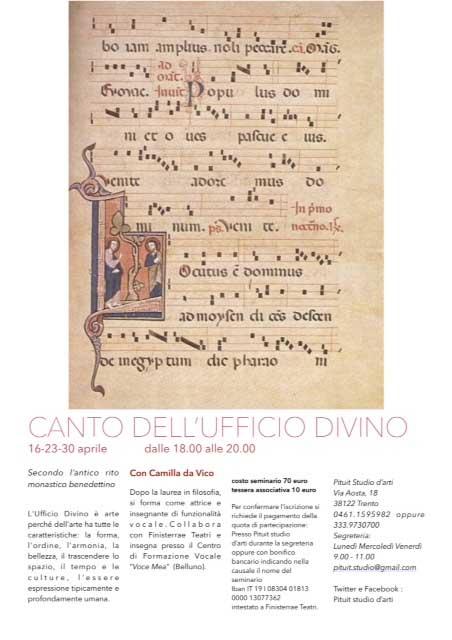 bo iam amplius noli peccare.
Populus domi
ni et oues pascue eius.
Venite adoremus do
minum. ps. Venite.
Locutus ē dominus
ad moysen di cēs descen
de in egyptum dic pharao ni
CANTO DELL'UFFICIO DIVINO
16-23-30 aprile dalle 18.00 alle 20.00
Secondo l'antico rito
monastico benedettino
L'Ufficio Divino è arte
perché dell'arte ha tutte le
caratteristiche: la forma,
l'ordine, l'armonia, la
bellezza, il trascendere lo
spazio, il tempo e le
culture, l'essere
espressione tipicamente e
profondamente umana.
Con Camilla da Vico
Dopo la laurea in filosofia,
si forma come attrice e
insegnante di funzionalità
vocale.Collabora
con Finisterrae Teatri ed
insegna presso il Centro
di Formazione Vocale
"Voce Mea" (Belluno).
costo seminario 70 euro
tessera associativa 10 euro
Per confermare l'iscrizione si
richiede il pagamento della
quota di partecipazione:
Presso Pituit studio
d'arti durante la segreteria
oppure con bonifico
bancario indicando nella
causale il nome del
seminario
Iban IT 19I 08304 01813
0000 13077362
intestato a Finisterrae Teatri.
Pituit Studio d'arti
Via Aosta, 18
38122 Trento
0461.1595982 oppure
333.9730700
Segreteria:
Lunedì Mercoledì Venerdì
9.00 - 11.00
pituit.studio@gmail.com
Twitter e Facebook :
Pituit studio d'arti